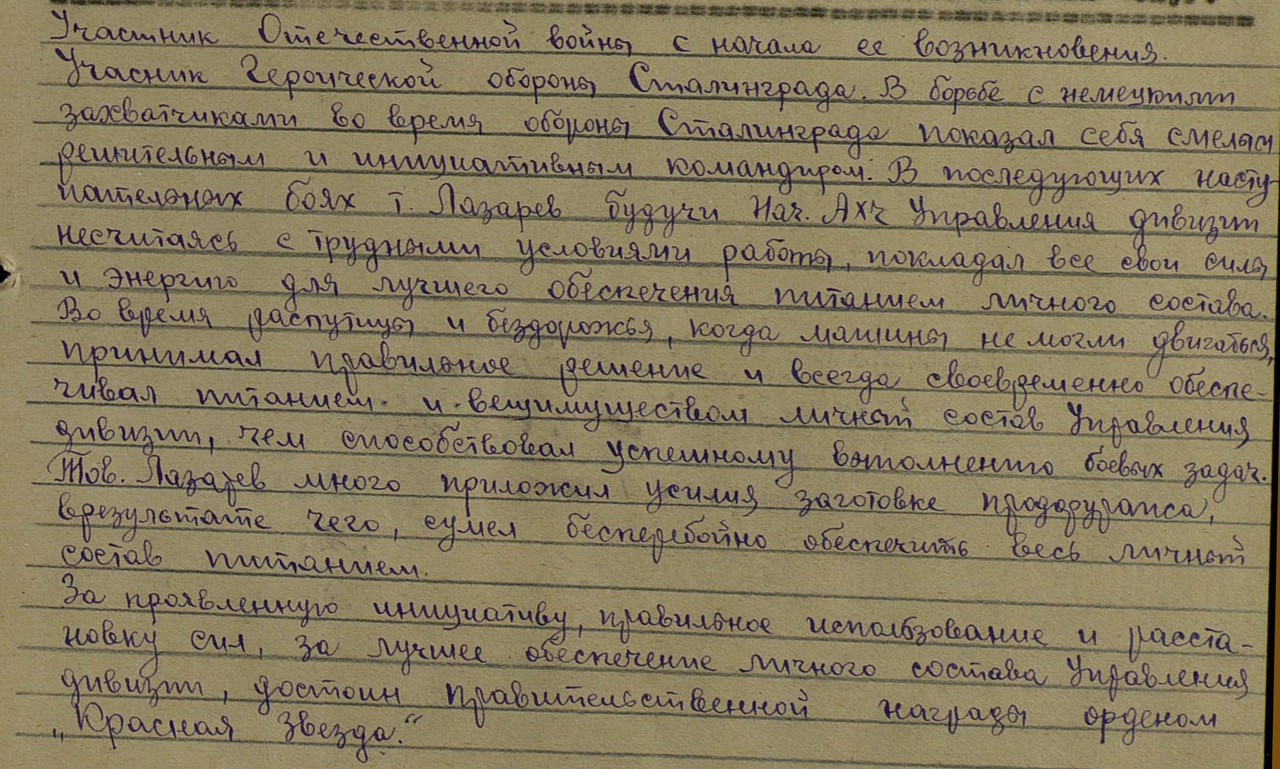 Участник Отечественной войны с начала ее возникновения.
Учасник Героической обороны Сталинграда. В борьбе с немецкими
захватчиками во время обороны Сталинграда показал себя смелым
решительным и инициативным командиром. В последующих насту-
пательных боях т. Лазарев будучи Нач. АХЧ Управления дивизии
несчитаясь с трудными условиями работы, покладал все свои силы
и энергию для лучшего обеспечения питанием личного состава.
Во время распутицы и бездорожья, когда машины не могли двигаться,
принимал правильное решение и всегда своевременно обеспе-
чивал питанием и вещимуществом личный состав Управления
дивизии, чем способствовал успешному выполнению боевых задач.
Тов. Лазарев много приложил усилия заготовке продфуража,
врезультате чего, сумел бесперебойно обеспечить весь личный
состав питанием.
За проявленную инициативу, правильное использование и расста-
новку сил, за лучшее обеспечение личного состава Управления
дивизии, достоин правительственной награды орденом
„Красная Звезда."